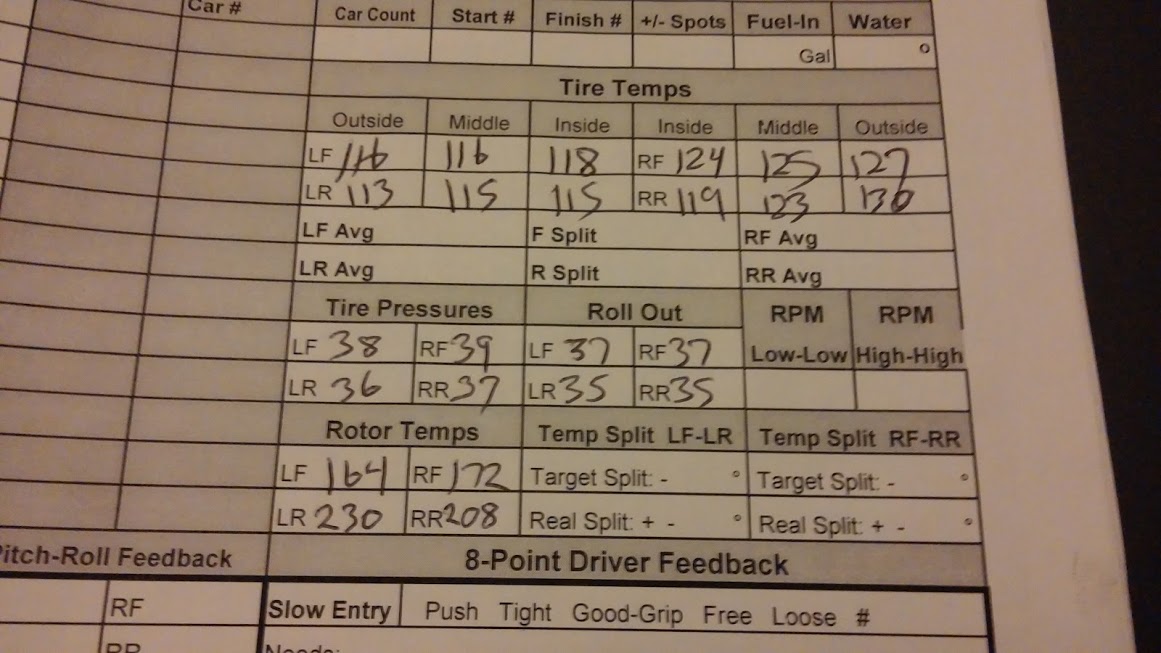 Car # Car Count Start # Finish # +/- Spots Fuel-In Water
Gal °
Tire Temps
Outside Middle Inside Inside Middle Outside
LF 116 116 118 RF 124 125 127
LR 113 115 115 RR 119 123 130
LF Avg F Split RF Avg
LR Avg R Split RR Avg
Tire Pressures Roll Out RPM RPM
LF 38 RF 39 LF 37 RF 37 Low-Low High-High
LR 36 RR 37 LR 35 RR 35
Rotor Temps Temp Split LF-LR Temp Split RF-RR
LF 164 RF 172 Target Split: - ° Target Split: - °
LR 230 RR 208 Real Split: + - ° Real Split: + - °
Pitch-Roll Feedback 8-Point Driver Feedback
RF Slow Entry Push Tight Good-Grip Free Loose #
RR Needs: